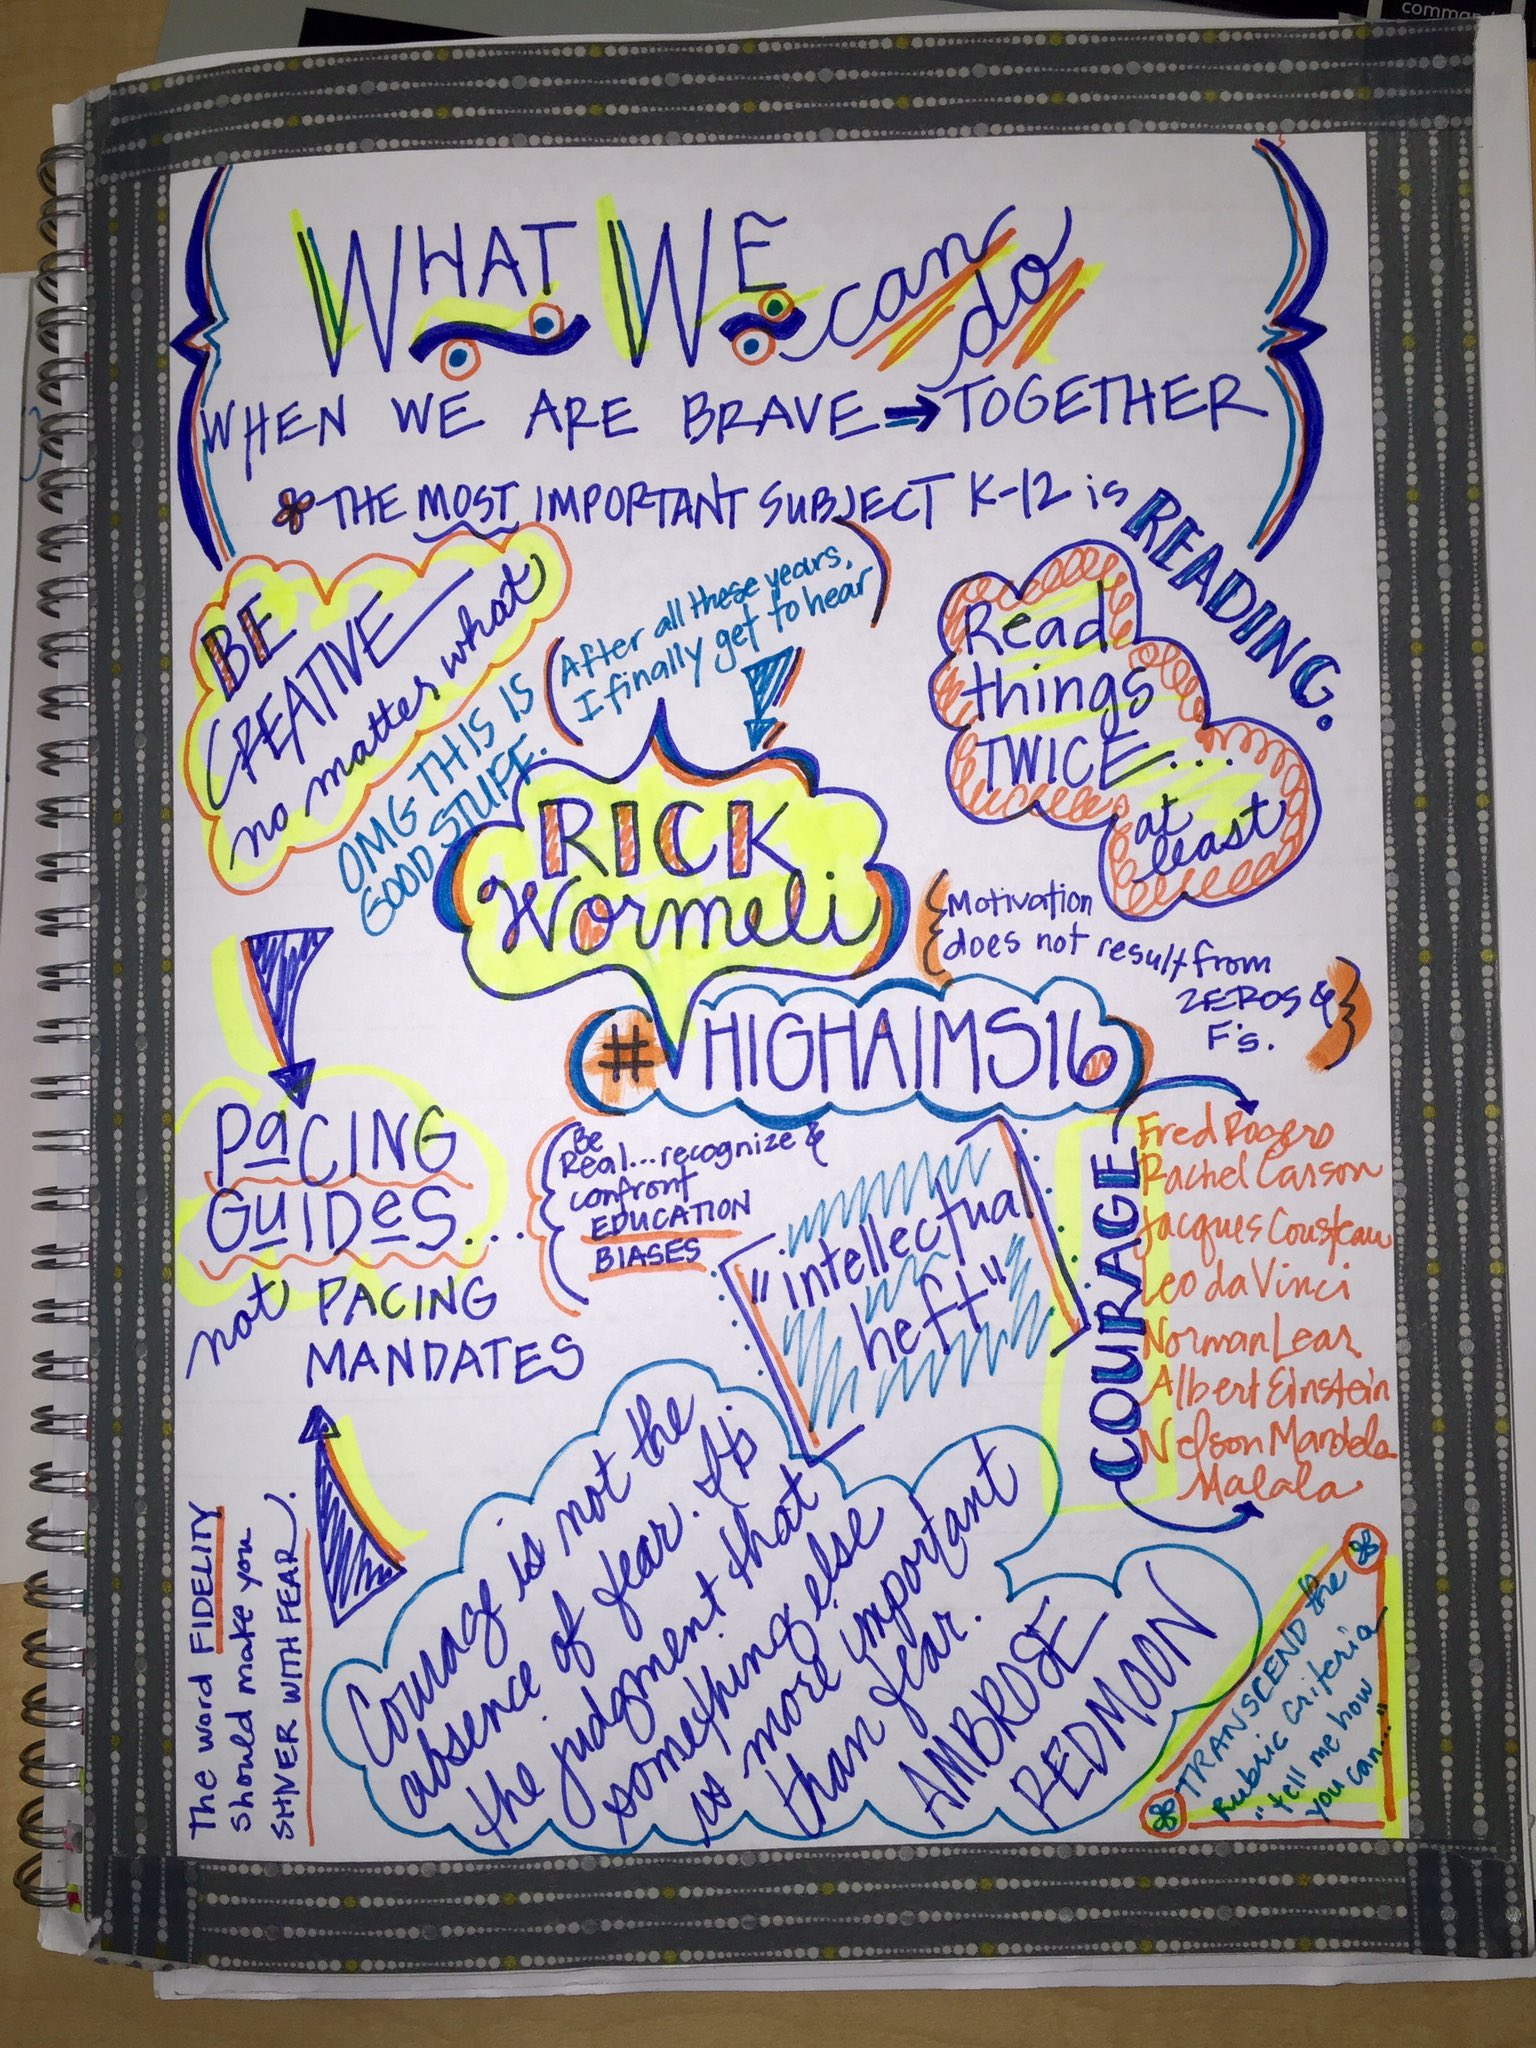 comman
WHAT WE can do
WHEN WE ARE BRAVE ⇒ TOGETHER
THE MOST IMPORTANT SUBJECT K-12 is READING.
BE
CREATIVE
no matter what
OMG THIS IS
GOOD STUFF.
(After all these years,
I finally get to hear)
RICK
Wormeli
Read
things
TWICE...
at
least
{Motivation
does not result from
ZEROS &
F's.}
#HIGHAIMS16
PaCING
GuIDeS...
not PACING
MANDATES
Be
Real... recognize &
confront
EDUCATION
BIASES
"intellectual
heft"
COURAGE
Fred Rogers
Rachel Carson
Jacques Cousteau
Leo da Vinci
Norman Lear
Albert Einstein
Nelson Mandela
Malala
The word FIDELITY
should make you
SHIVER WITH FEAR.
Courage is not the
absence of fear. It's
the judgment that
something else
is more important
than fear.
AMBROSE
REDMOON
TRANSCEND the
Rubric Criteria
"tell me how
you can..."